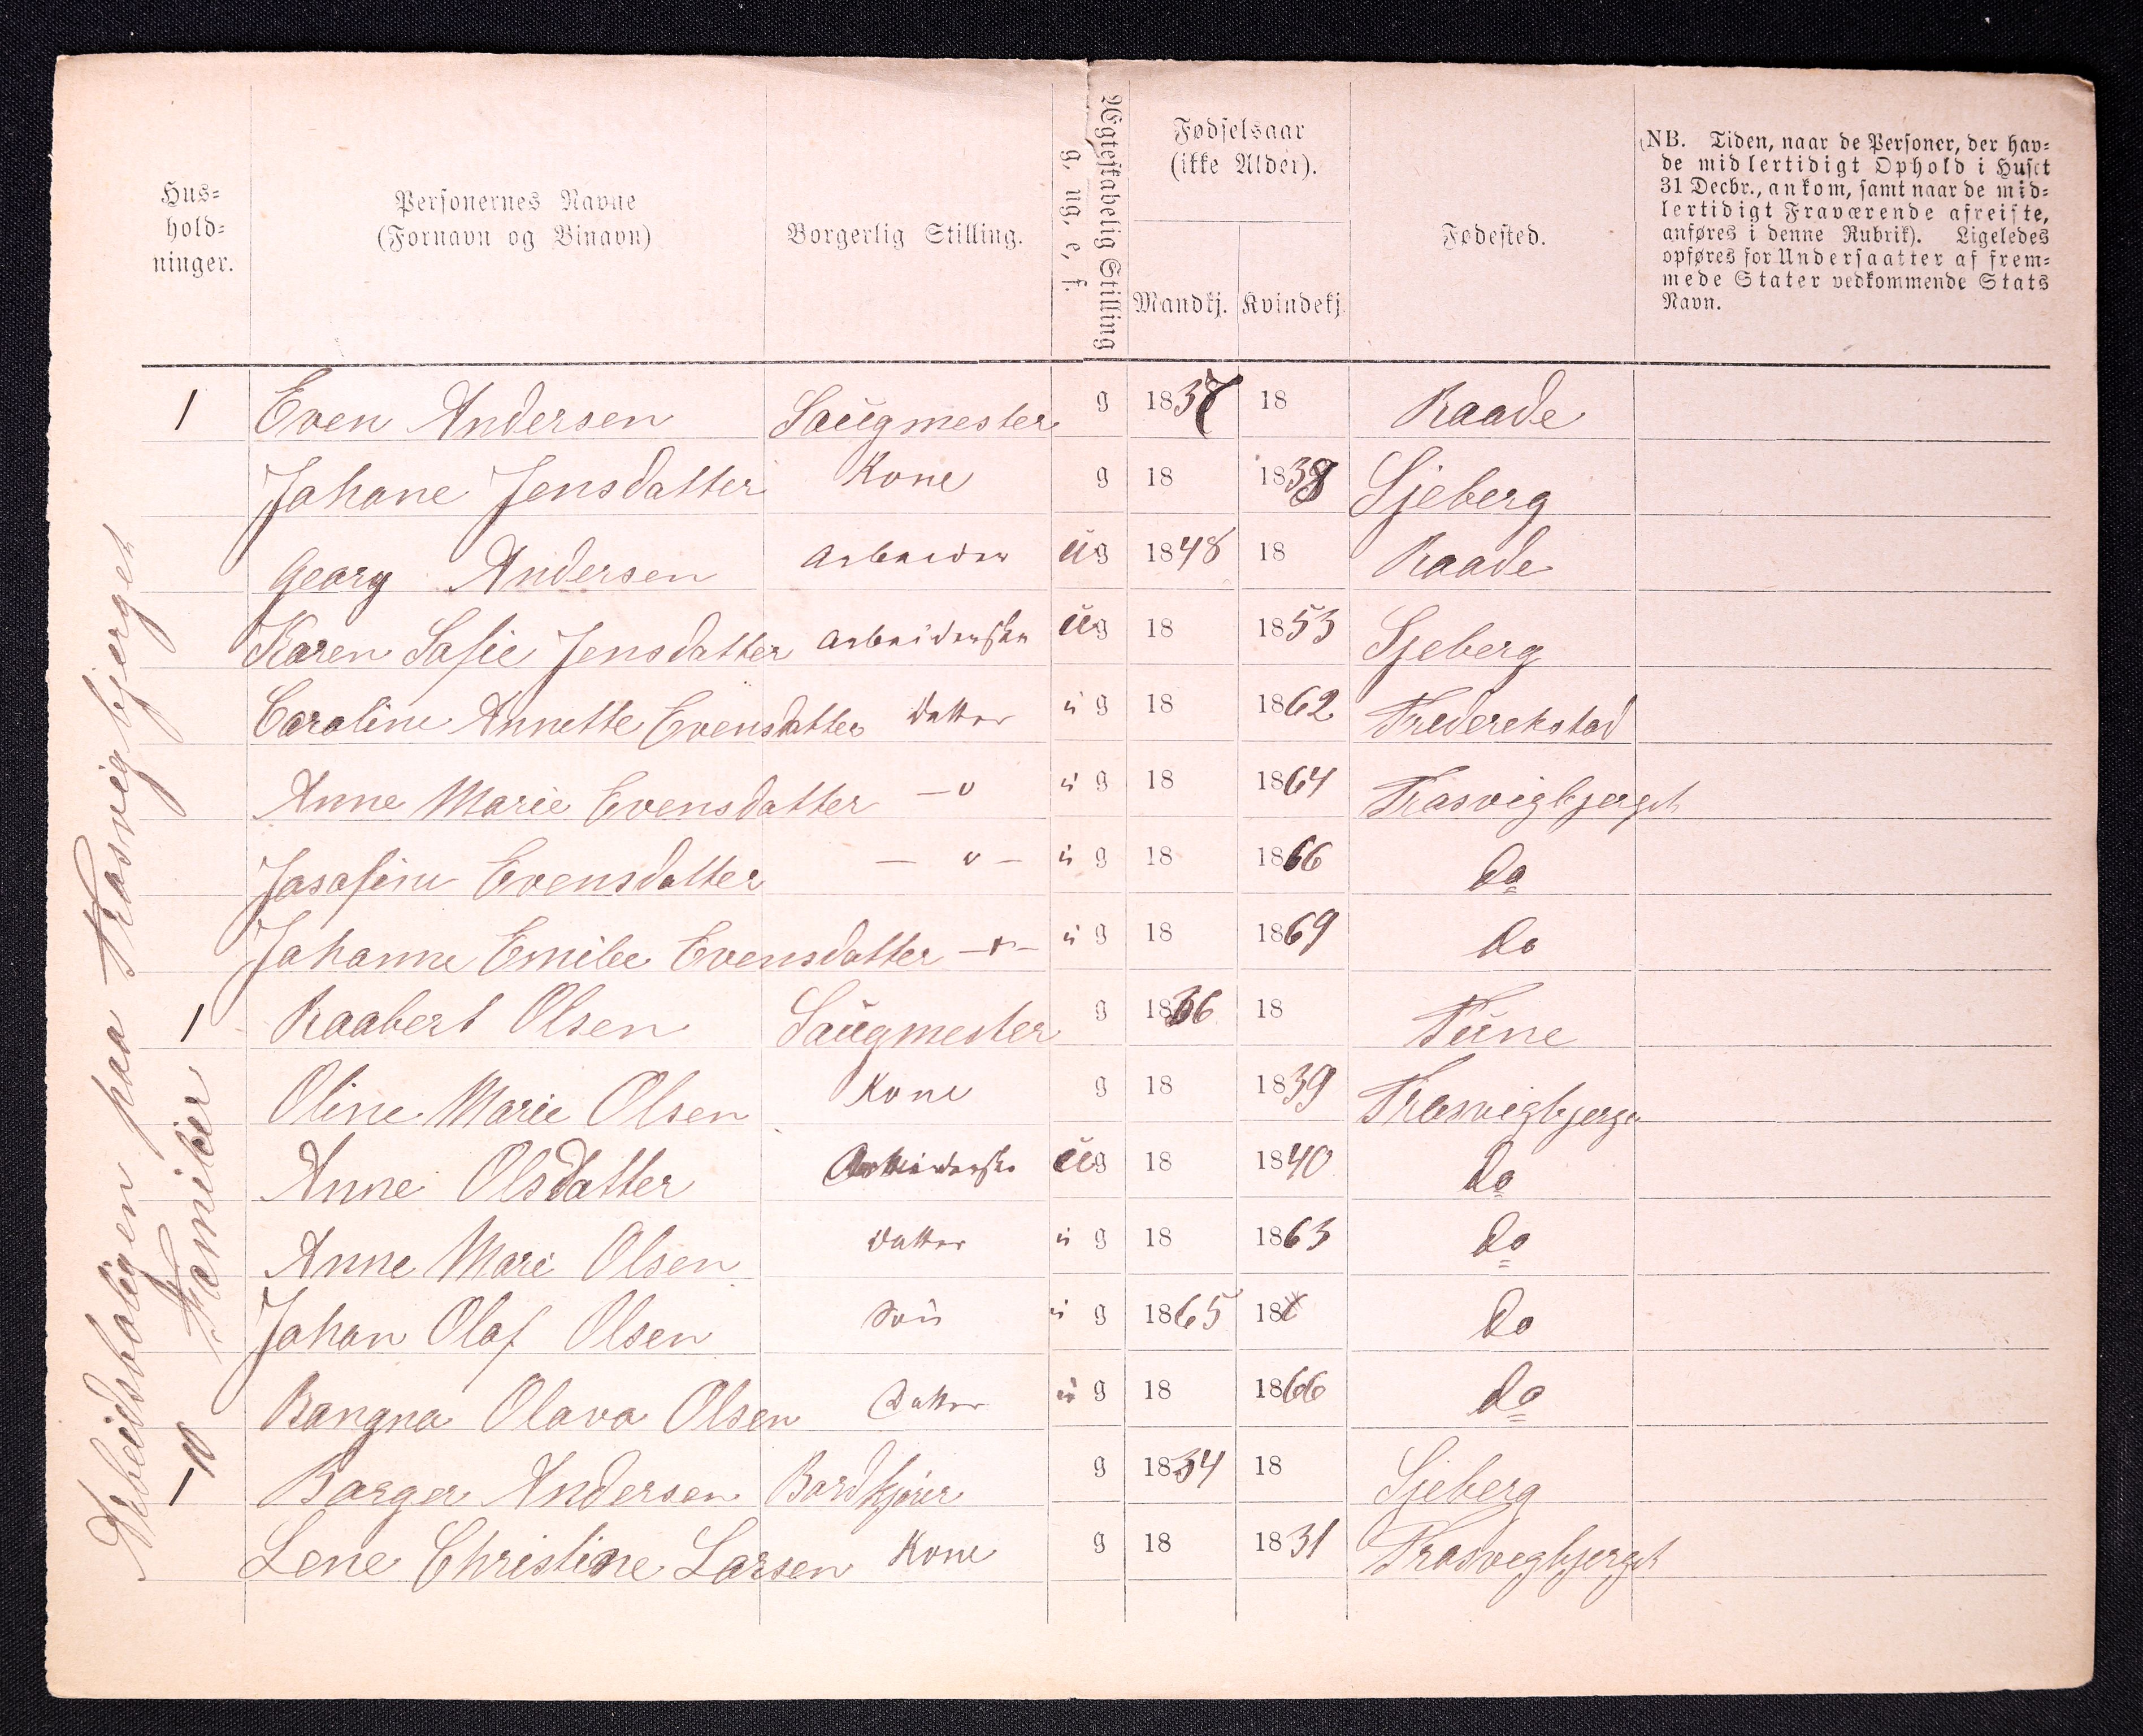 Hus-
hold-
ninger.
Personernes Navne
(Fornavn og Binavn)
Borgerlig Stilling.
Ægteskabelig Stilling
g, ug, e, f.
Fødselsaar
(ikke Alder).
Mandkj. Kvindekj.
Fødested.
(NB. Tiden, naar de Personer, der hav-
de midlertidigt Ophold i Huset
31 Decbr., ankom, samt naar de mid-
lertidigt Fraværende afreiste,
anføres i denne Rubrik). Ligeledes
opføres for Undersaatter af frem-
mede Stater vedkommende Stats
Navn.
1 Even Andersen Saugmester g 1837 18 Raade
Johane Jensdatter Kone g 18 1838 Sjeberg
Georg Andersen Arbeider ug 1848 18 Raade
Karen Sofie Jensdatter Arbeiderske ug 18 1853 Sjeberg
Caroline Annette Evensdatter Datter u g 18 1862 Frederekstad
Anne Marie Evensdatter —"— u g 18 1864 Trosvigbjerget
Josofine Evensdatter — " — u g 18 1866 do
Johanne Emilie Evensdatter —"— u g 18 1869 do
1 Raabert Olsen Saugmester g 1836 18 Tune
Oline Marie Olsen Kone g 18 1839 Trosvigbjerge
Anne Olsdatter Arbeiderske ug 18 1840 do
Anne Mari Olsen Datter u g 18 1863 do
Johan Olaf Olsen Søn u g 1865 18 do
Rangna Olava Olsen Datter u g 18 1866 do
1 Borger Andersen Bordkjører g 1834 18 Sjeberg
Lene Christine Larsen Kone g 18 1831 Trosvegbjerget
Arbeidsboligen paa Trosvigbjerget
10 Familier